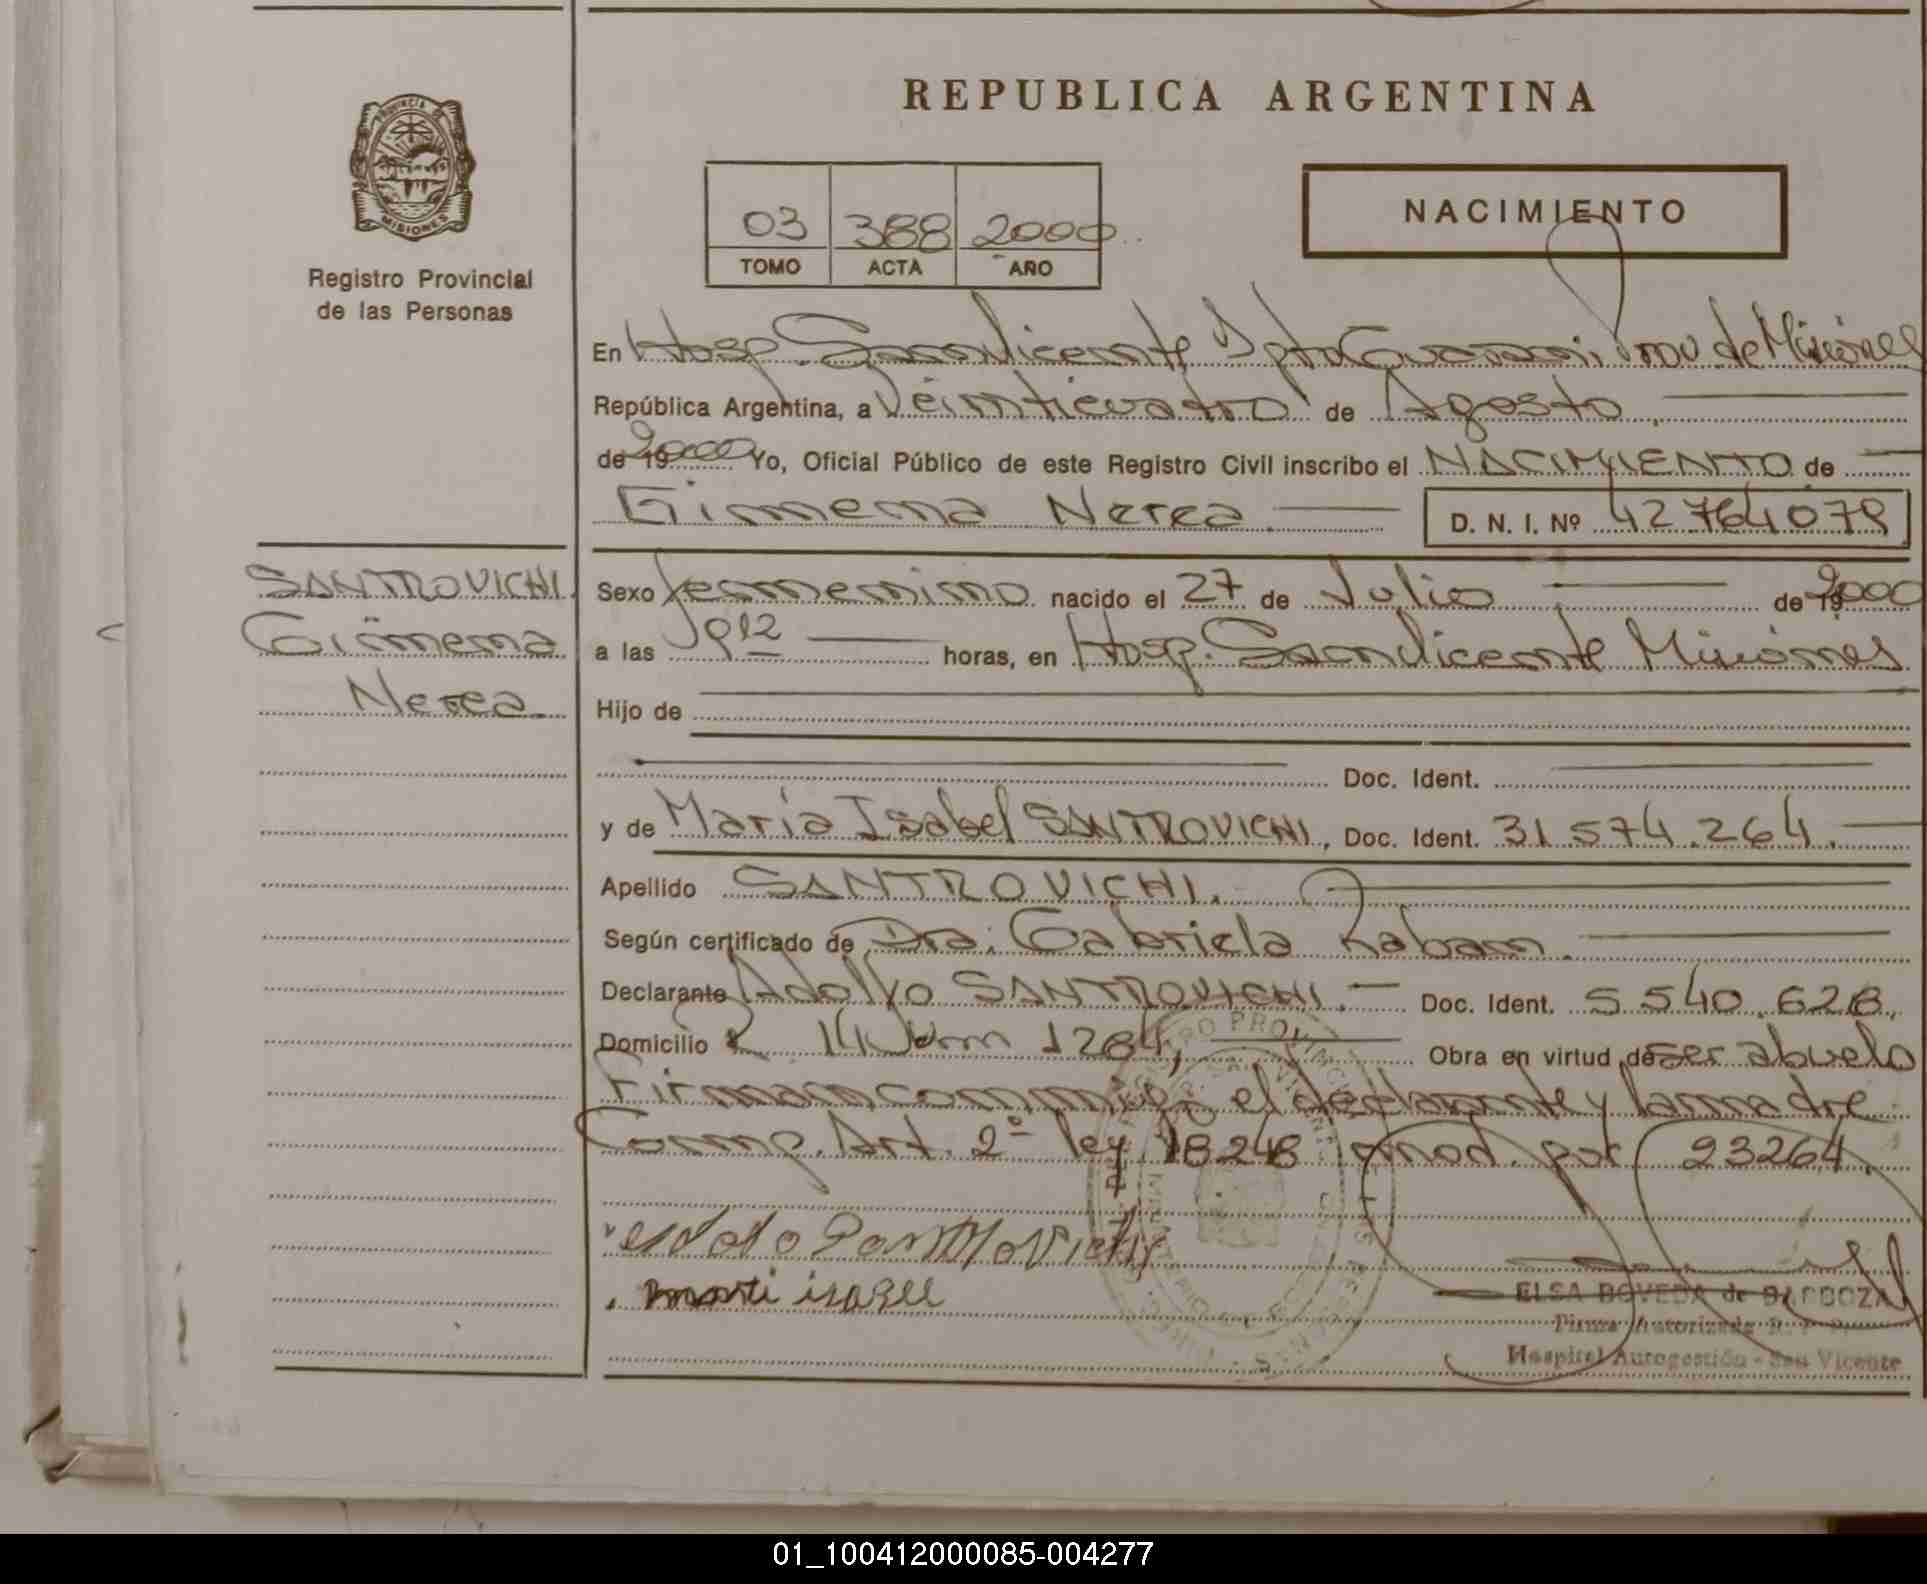 REPUBLICA ARGENTINA
PROVINCIA
MISIONES
Registro Provincial
de las Personas
03 388 2000
TOMO ACTA AÑO
NACIMIENTO
En Hosp. San Vicente Dpto Guarani, Prov de Misiones
República Argentina, a Veinticuatro de Agosto
de 19 2000 Yo, Oficial Público de este Registro Civil inscribo el NACIMIENTO de
Ginmena Nerea D. N. I. Nº 42764078
SANTROVICHI
Ginmena
Nerea
Sexo femenino nacido el 27 de Julio de 19 2000
a las 012 horas, en Hosp. San Vicente Misiones
Hijo de
Doc. Ident.
y de María Isabel SANTROVICHI, Doc. Ident. 31.574.264.
Apellido SANTROVICHI.
Según certificado de Dra. Gabriela Raban.
Declarante Adolfo SANTROVICHI. Doc. Ident. 5.540.628.
Domicilio Km 1284, Obra en virtud de ser abuelo
Firman conmigo el declarante y la madre
Comp. Art. 2º ley 18248 mod. por 23264.
ELSA BOVEDA de BARBOZA
Firma Autorizada R. P. P.
Hospital Autogestión - San Vicente
01_100412000085-004277